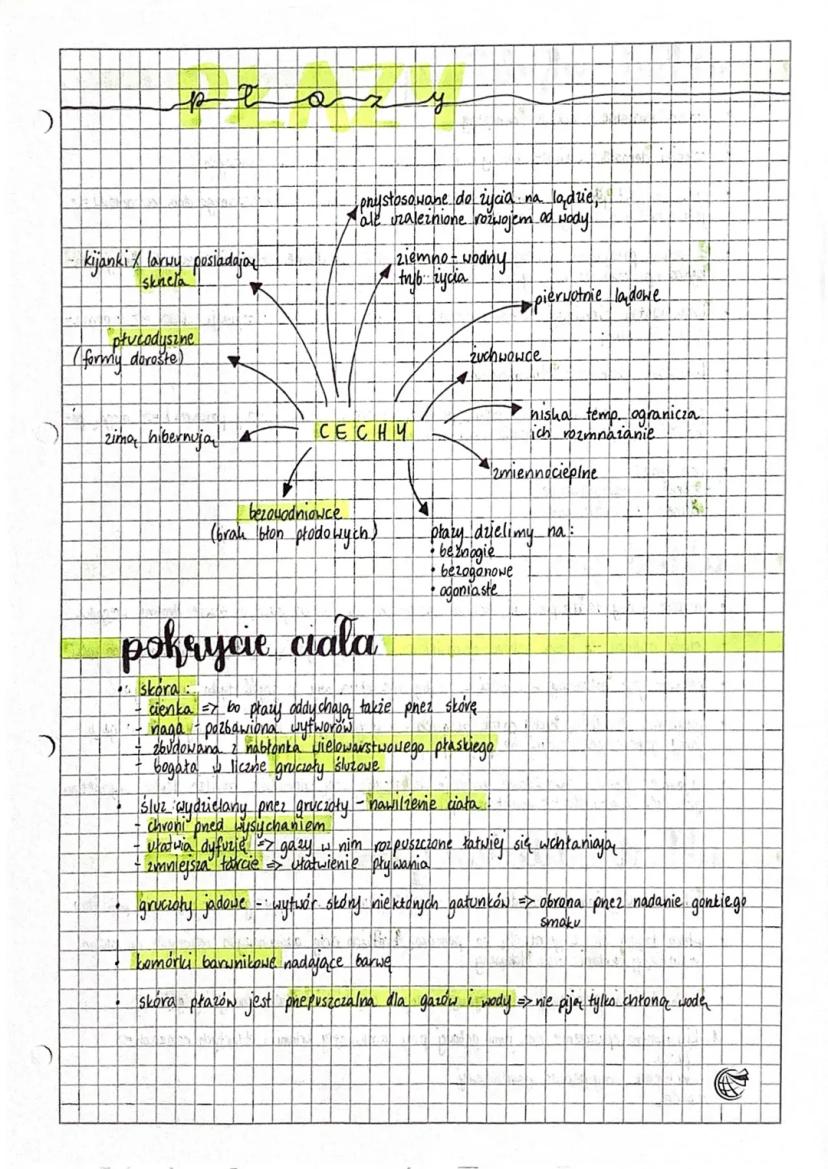 PŁAZY
płazy
przystosowane do życia na lądzie,
ale uzależnione rozwojem od wody
kijanki / larwy posiadają
skrzela
ziemno-wodny
tryb życia
pierwotnie lądowe
płucodyszne
(formy dorosłe)
żuchwowce
niska temp. ogranicza
ich rozmnażanie
CECHY
zimą hibernują
zmiennocieplne
bezowodniowce
(brak błon płodowych)
płazy dzielimy na:
• beznogie
• bezogonowe
• ogoniaste
pokrycie ciała
• skóra:
- cienka => bo płazy oddychają także przez skórę
- naga - pozbawiona wytworów
- zbudowana z nabłonka wielowarstwowego płaskiego
- bogata w liczne gruczoły śluzowe
• śluz wydzielany przez gruczoły - nawilżenie ciała:
- chroni przed wysychaniem
- ułatwia dyfuzję => gazy w nim rozpuszczone łatwiej się wchłaniają
- zmniejsza tarcie => ułatwienie pływania
• gruczoły jadowe - wytwór skóry niektórych gatunków => obrona przez nadanie gorzkiego
smaku
• komórki barwnikowe nadające barwę
• skóra płazów jest przepuszczalna dla gazów i wody => nie piją tylko chłoną wodę